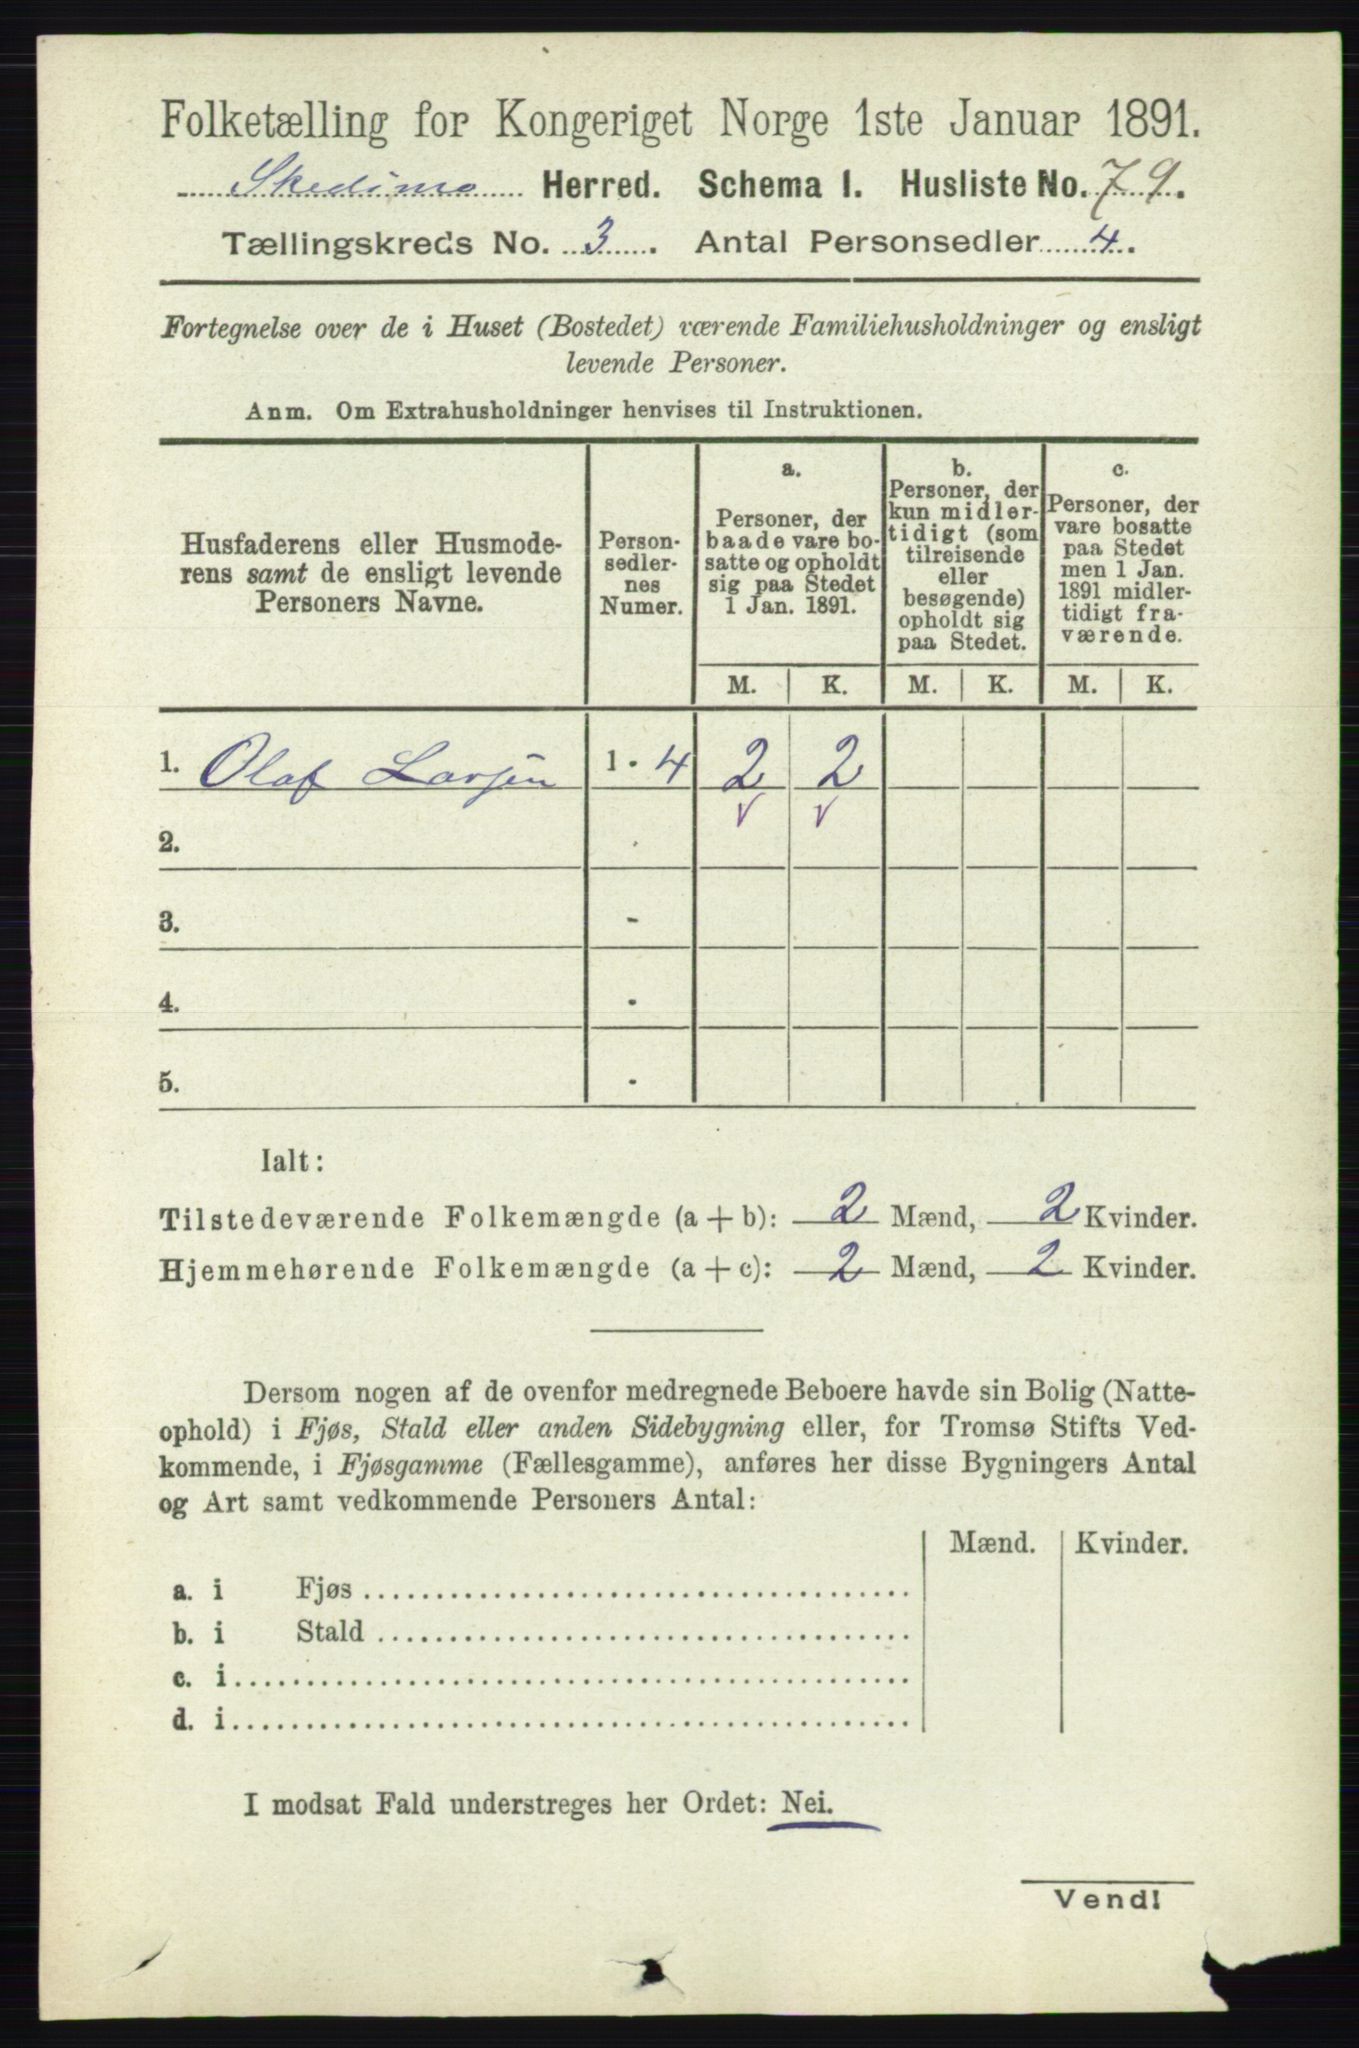 Folketælling for Kongeriget Norge 1ste Januar 1891.
Skedsmo Herred. Schema I. Husliste No. 79.
Tællingskreds No. 3. Antal Personsedler 4.
Fortegnelse over de i Huset (Bostedet) værende Familiehusholdninger og ensligt
levende Personer.
Anm. Om Extrahusholdninger henvises til Instruktionen.
Husfaderens eller Husmode-
rens samt de ensligt levende
Personers Navne.
Person-
sedler-
nes
Numer.
a.
Personer, der
baade vare bo-
satte og opholdt
sig paa Stedet
1 Jan. 1891.
b.
Personer, der
kun midler-
tidigt (som
tilreisende
eller
besøgende)
opholdt sig
paa Stedet.
c.
Personer, der
vare bosatte
paa Stedet
men 1 Jan.
1891 midler-
tidigt fra-
værende.
M. K. M. K. M. K.
1. Olaf Larsen 1 · 4 2 2
2.
3. -
4. ·
5. ·
Ialt:
Tilstedeværende Folkemængde (a + b): 2 Mænd, 2 Kvinder.
Hjemmehørende Folkemængde (a + c): 2 Mænd, 2 Kvinder.
Dersom nogen af de ovenfor medregnede Beboere havde sin Bolig (Natte-
ophold) i Fjøs, Stald eller anden Sidebygning eller, for Tromsø Stifts Ved-
kommende, i Fjøsgamme (Fællesgamme), anføres her disse Bygningers Antal
og Art samt vedkommende Personers Antal:
Mænd. Kvinder.
a. i Fjøs
b. i Stald
c. i
d. i
I modsat Fald understreges her Ordet: Nei.
Vend!